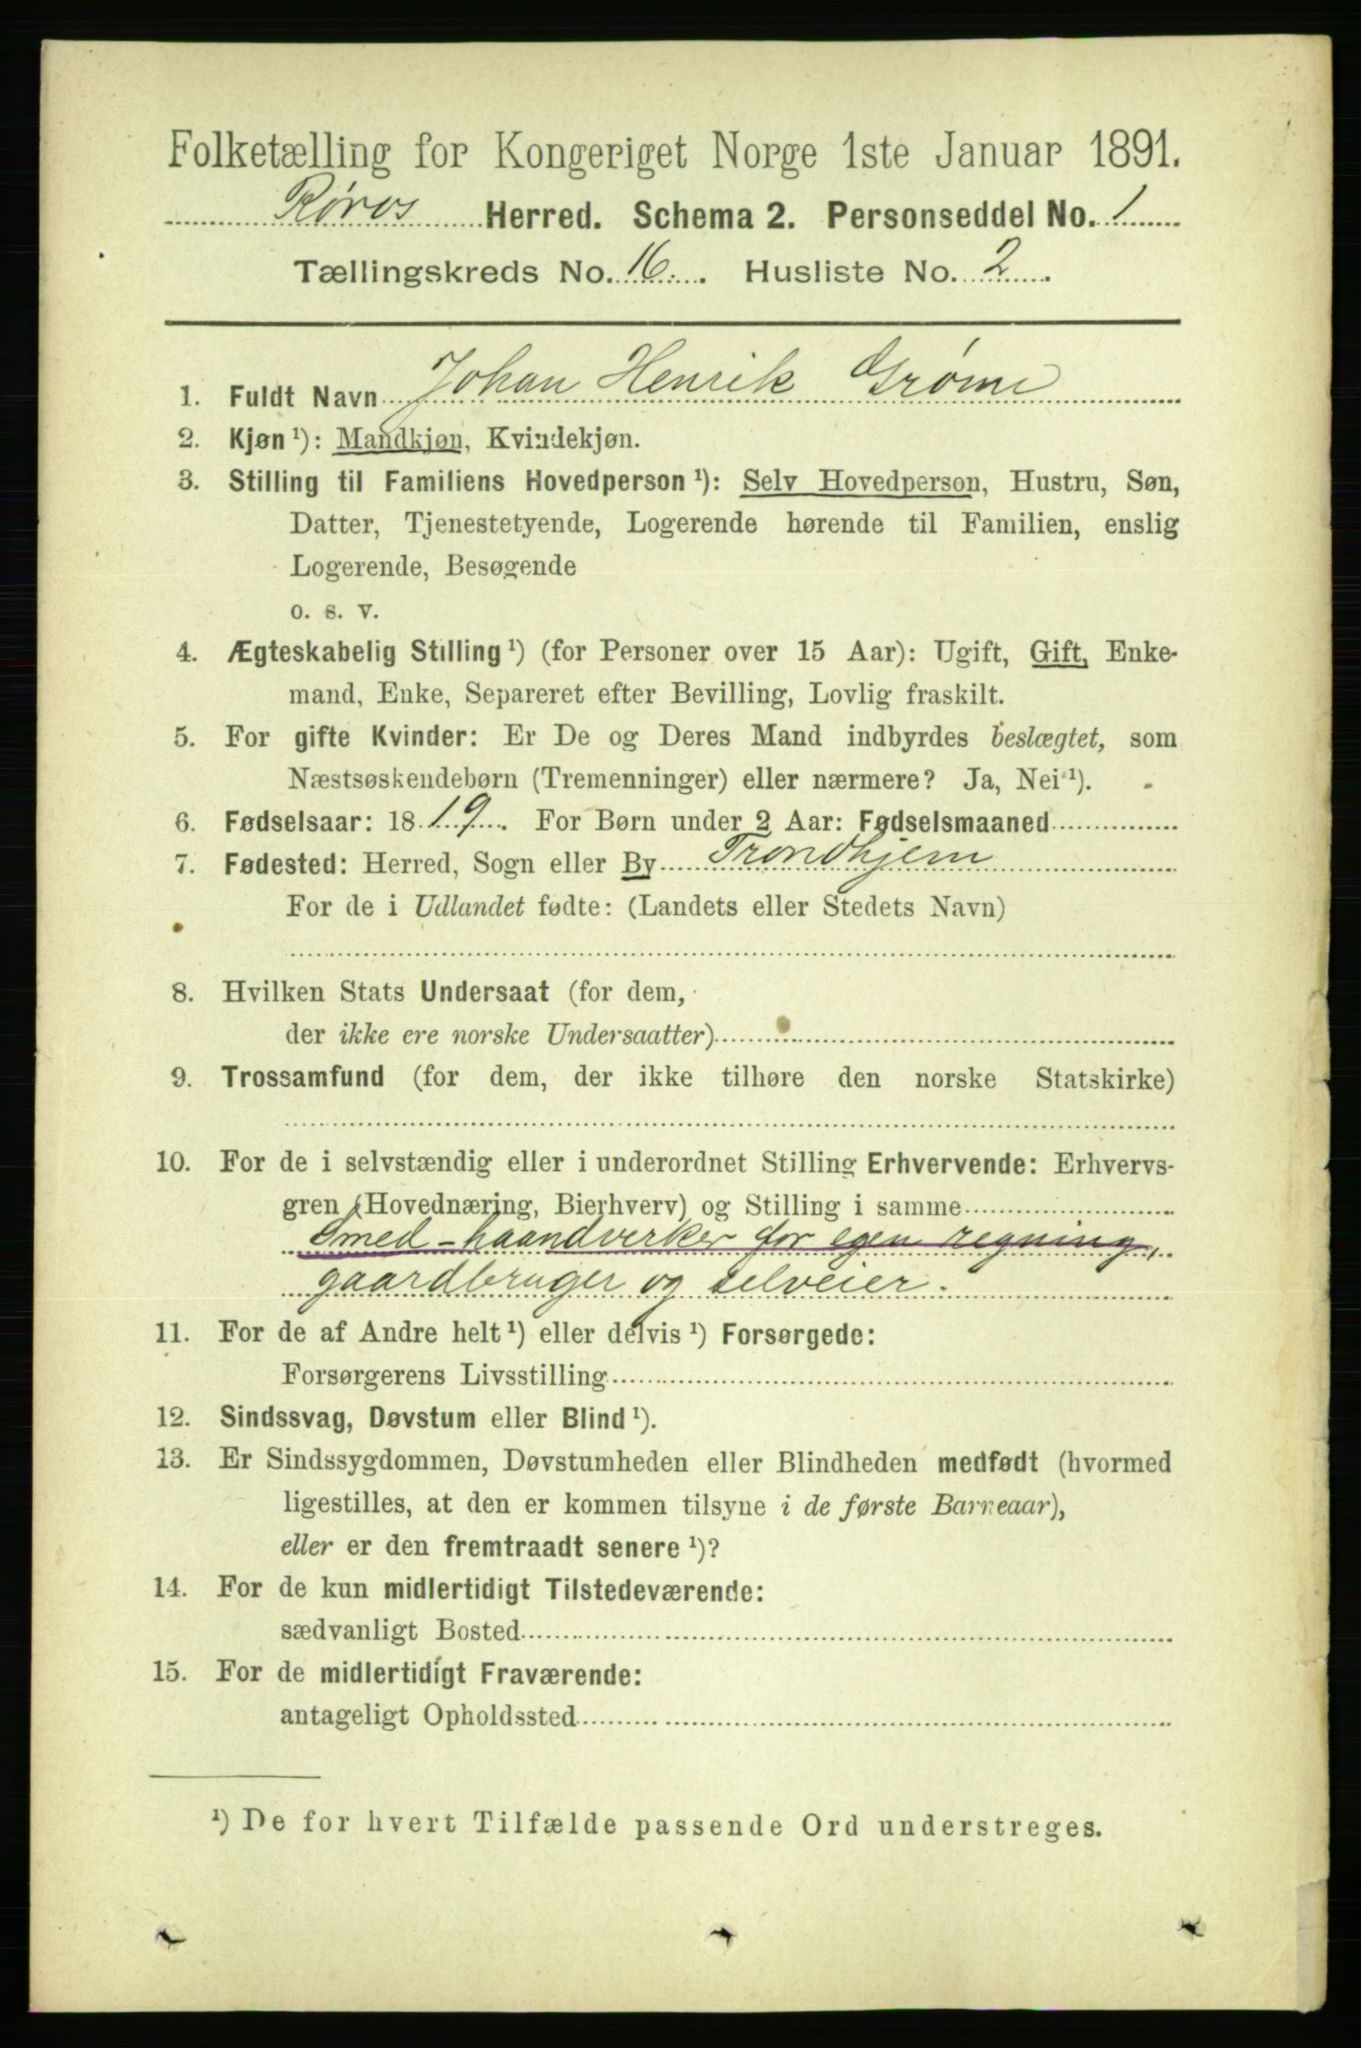 Folketælling for Kongeriget Norge 1ste Januar 1891.
Røros Herred. Schema 2. Personseddel No. 1
Tællingskreds No. 16. Husliste No. 2
1. Fuldt Navn Johan Henrik Grøme
2. Kjøn ¹): Mandkjøn, Kvindekjøn.
3. Stilling til Familiens Hovedperson ¹): Selv Hovedperson, Hustru, Søn,
Datter, Tjenestetyende, Logerende hørende til Familien, enslig
Logerende, Besøgende
o. s. v.
4. Ægteskabelig Stilling ¹) (for Personer over 15 Aar): Ugift, Gift, Enke-
mand, Enke, Separeret efter Bevilling, Lovlig fraskilt.
5. For gifte Kvinder: Er De og Deres Mand indbyrdes beslægtet, som
Næstsøskendebørn (Tremenninger) eller nærmere? Ja, Nei ¹).
6. Fødselsaar: 1819. For Børn under 2 Aar: Fødselsmaaned
7. Fødested: Herred, Sogn eller By Trondhjem
For de i Udlandet fødte: (Landets eller Stedets Navn)
8. Hvilken Stats Undersaat (for dem,
der ikke ere norske Undersaatter)
9. Trossamfund (for dem, der ikke tilhøre den norske Statskirke)
10. For de i selvstændig eller i underordnet Stilling Erhvervende: Erhvervs-
gren (Hovednæring, Bierhverv) og Stilling i samme
Smed - haandverker for egen regning,
gaardbruger og selveier.
11. For de af Andre helt ¹) eller delvis ¹) Forsørgede:
Forsørgerens Livsstilling
12. Sindssvag, Døvstum eller Blind ¹).
13. Er Sindssygdommen, Døvstumheden eller Blindheden medfødt (hvormed
ligestilles, at den er kommen tilsyne i de første Barneaar),
eller er den fremtraadt senere ¹)?
14. For de kun midlertidigt Tilstedeværende:
sædvanligt Bosted
15. For de midlertidigt Fraværende:
antageligt Opholdssted
¹) De for hvert Tilfælde passende Ord understreges.